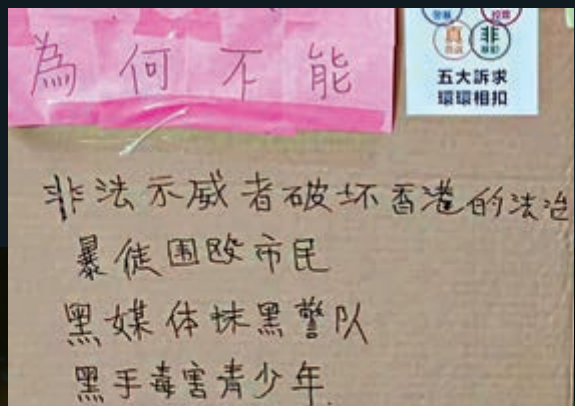 為何不能
真 非
五大訴求
環環相扣
非法示威者破坏香港的法治
暴徒围殴市民
黑媒体抹黑警队
黑手毒害青少年